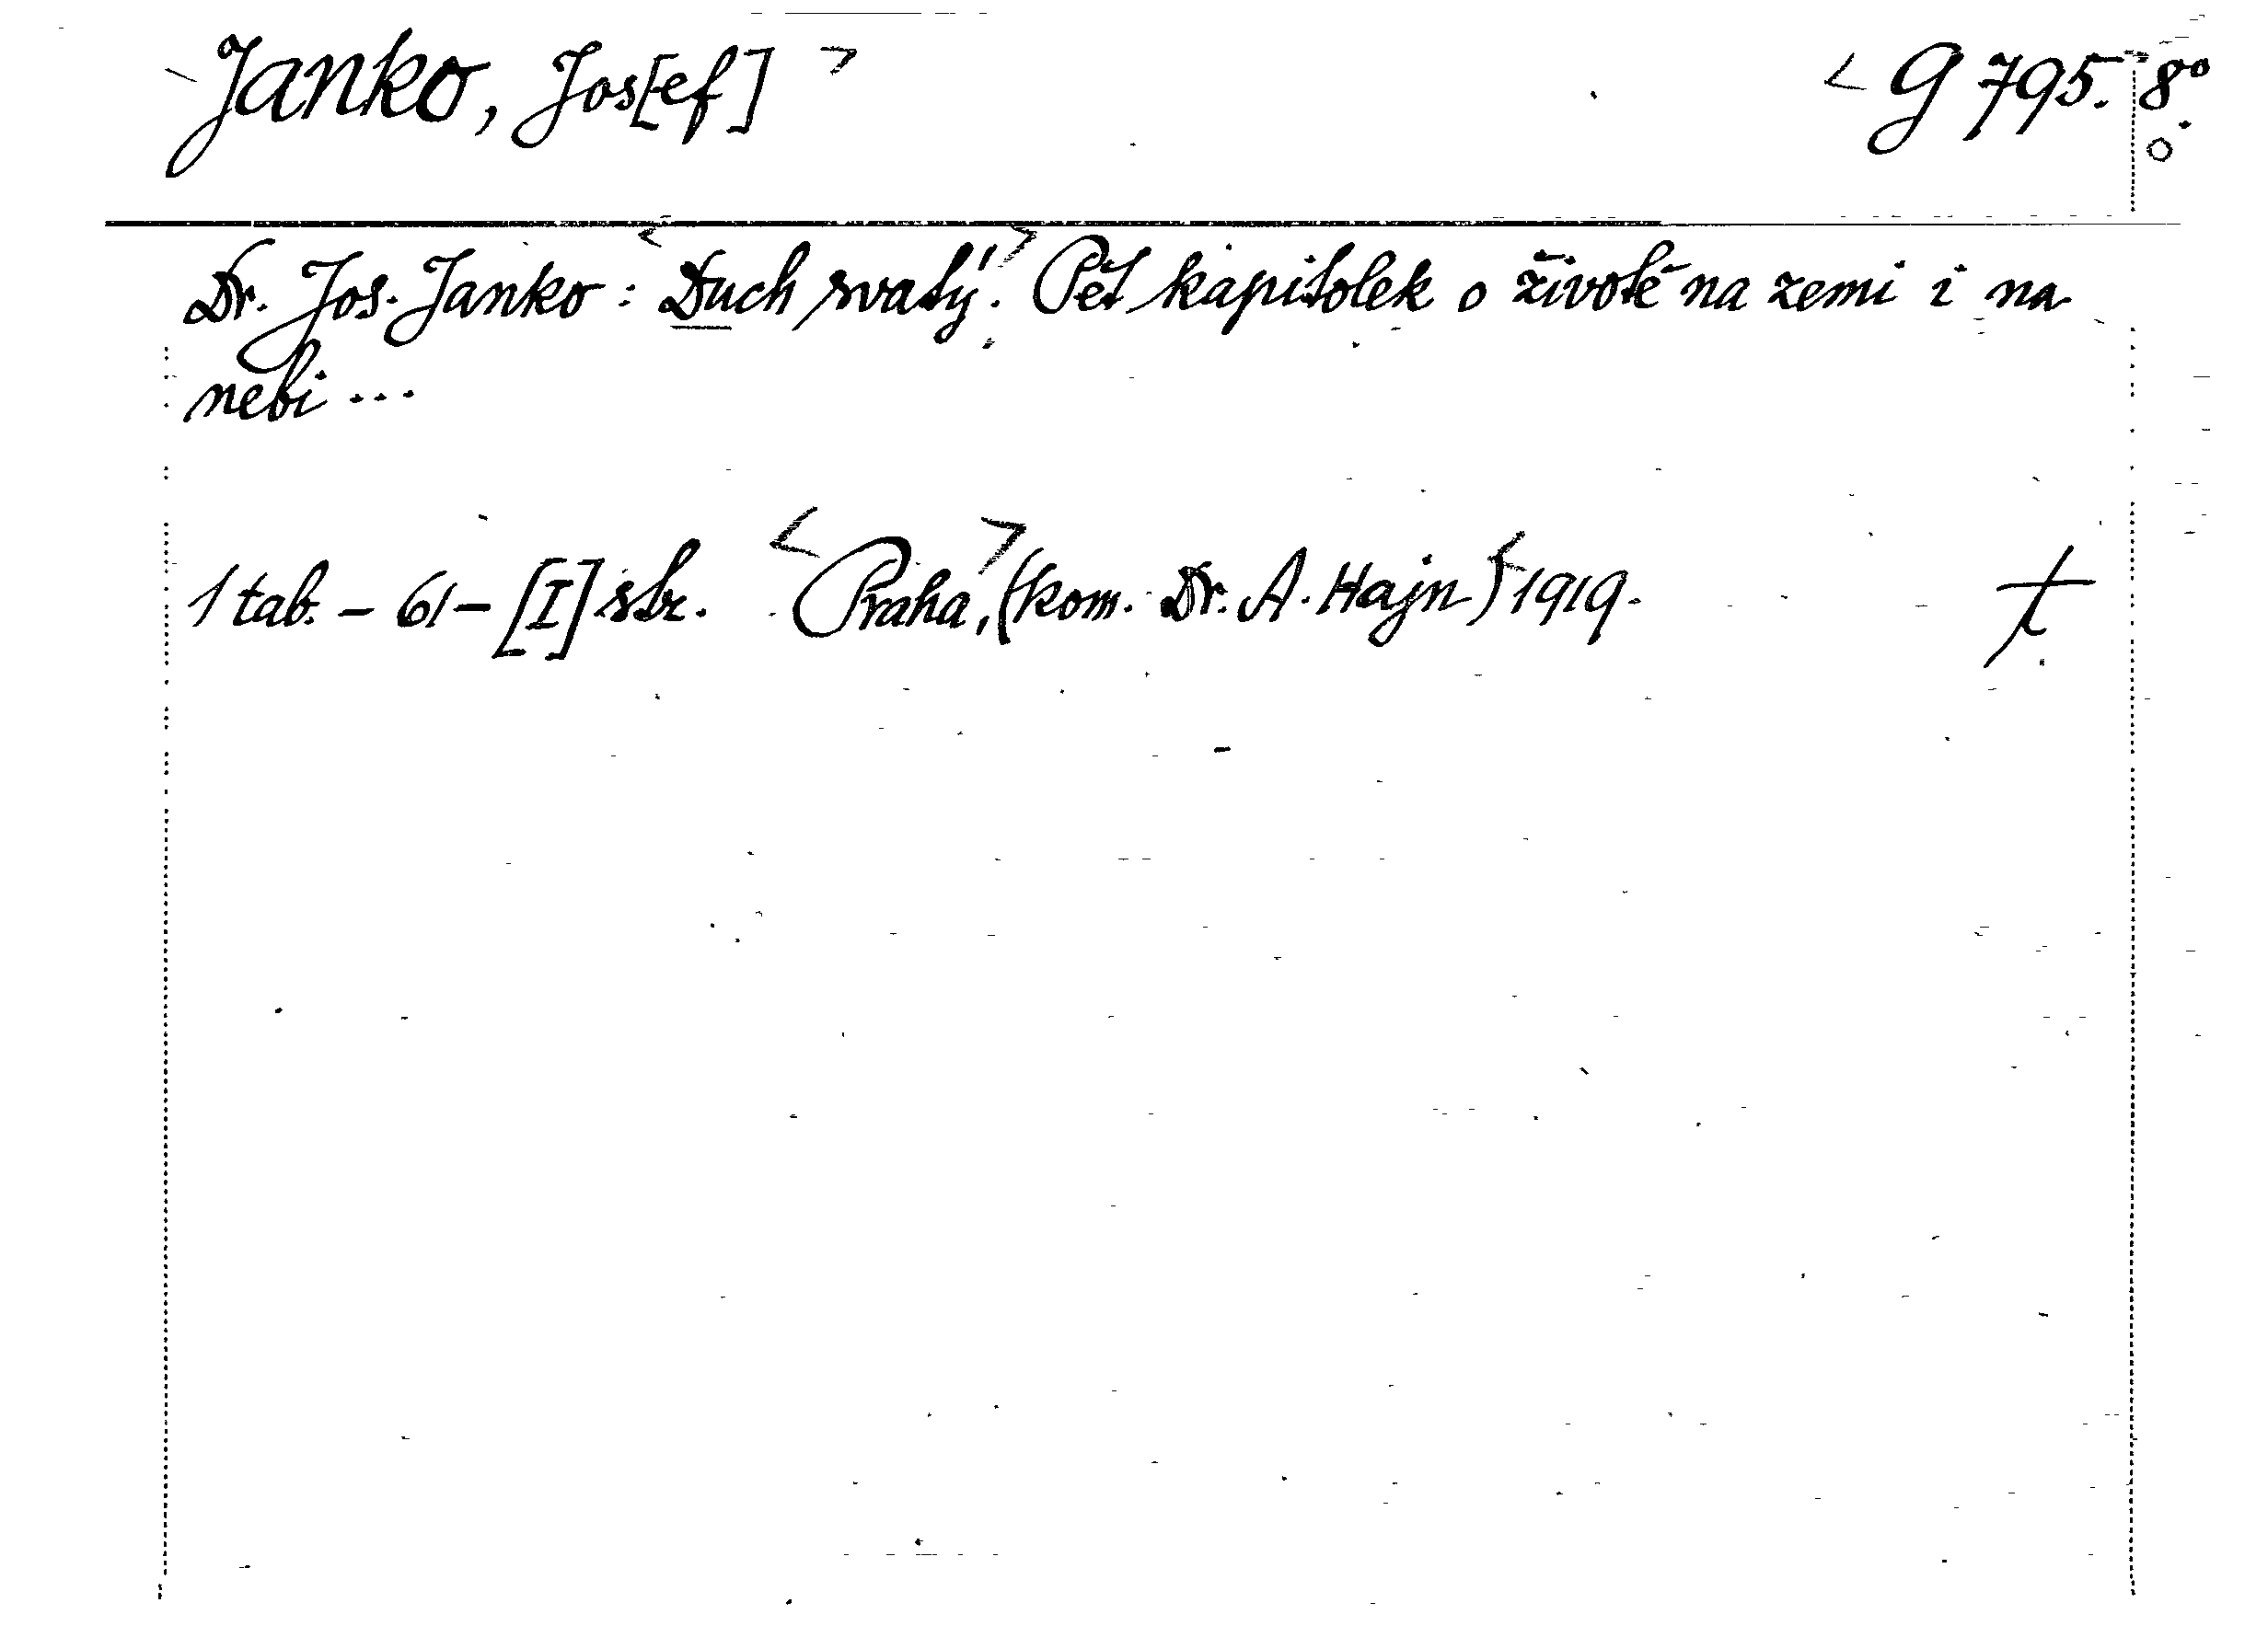 Janko, Jos[ef] G 795. 8°
Dr. Jos. Janko: Duch svatý. Pět kapitolek o životě na zemi i na
nebi ...
1 tab. - 61 - [I] str. Praha, (kom. Dr. A. Hajn) 1919.